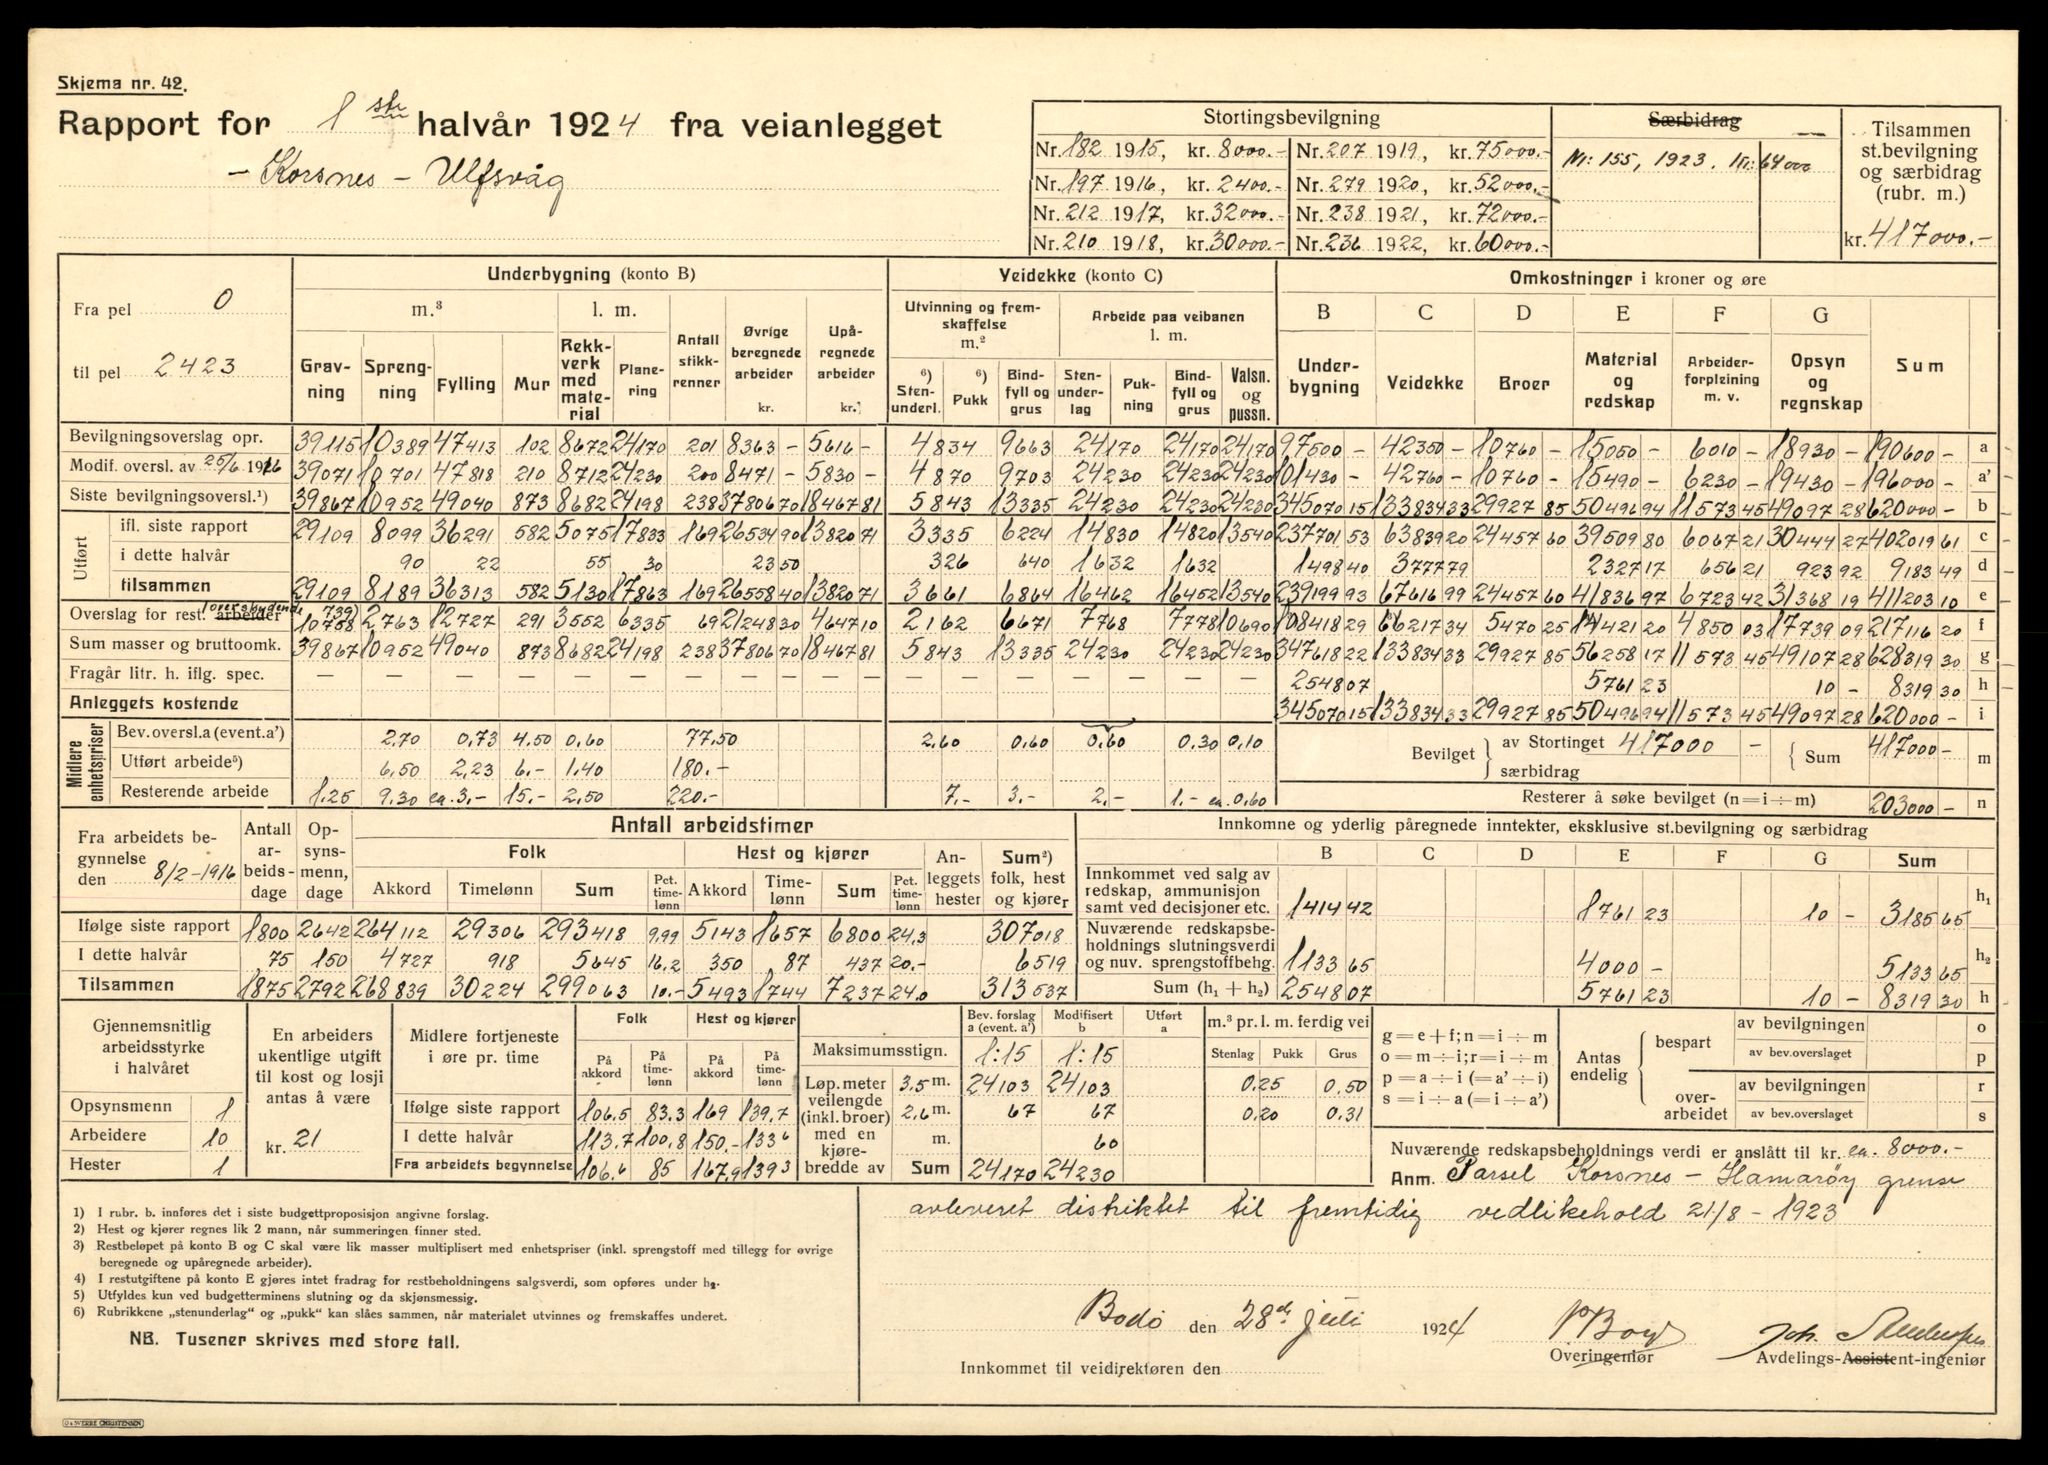 Skjema nr. 42.
Rapport for 1ste halvår 1924 fra veianlegget
- Korsnes - Ulfsvåg
Stortingsbevilgning
Nr. 182 1915, kr. 8000.- Nr. 207 1919, kr. 75000.-
Nr. 197 1916, kr. 2400.- Nr. 279 1920, kr. 52000.-
Nr. 212 1917, kr. 32000.- Nr. 238 1921, kr. 72000.-
Nr. 210 1918, kr. 30000.- Nr. 236 1922, kr. 60000.-
Særbidrag
Nr: 155, 1923. Kr: 64000
Tilsammen
st.bevilgning
og særbidrag
(rubr. m.)
kr. 417000.-
Fra pel 0
til pel 2423
Underbygning (konto B) Veidekke (konto C) Omkostninger i kroner og øre
m.³ l. m. Antall stikk-renner Øvrige beregnede arbeider kr. Upå-regnede arbeider kr. Utvinning og frem-skaffelse m.² Arbeide paa veibanen l. m. B C D E F G
Grav-ning Spreng-ning Fylling Mur Rekk-verk med mate-rial Plane-ring ⁶) Sten-underl. ⁶) Pukk Bind-fyll og grus Sten-under-lag Puk-ning Bind-fyll og grus Valsn. og pussn. Under-bygning Veidekke Broer Material og redskap Arbeider-forpleining m. v. Opsyn og regnskap Sum
Bevilgningsoverslag opr. 39115 10389 47413 102 8672 24170 201 8363 - 5616 - 4834 9663 24170 24170 24170 97500 - 42350 - 10760 - 15050 - 6010 - 18930 - 190600 - a
Modif. oversl. av 25/6 1916 39071 10701 47818 210 8712 24230 200 8471 - 5830 - 4870 9703 24230 24230 24230 101430 - 42760 - 10760 - 15490 - 6230 - 19430 - 196000 - a'
Siste bevilgningsoversl.¹) 39867 10952 49040 873 8682 24198 238 37806 70 18467 81 5843 13335 24230 24230 24230 345070 15 133834 33 29927 85 50496 94 11573 45 49097 28 620000 - b
Utført
ifl. siste rapport 29109 8099 36291 582 5075 17833 169 26534 90 13820 71 3335 6224 14830 14820 13540 237701 53 63839 20 24457 60 39509 80 6067 21 30444 27 402019 61 c
i dette halvår 90 22 55 30 23 50 326 640 1632 1632 1498 40 3777 79 2327 17 656 21 923 92 9183 49 d
tilsammen 29109 8189 36313 582 5130 17863 169 26558 40 13820 71 3661 6864 16462 16452 13540 239199 93 67616 99 24457 60 41836 97 6723 42 31368 19 411203 10 e
Overslag for rest. arbeider 10758 2763 12727 291 3552 6335 69 21248 30 4647 10 2162 6671 7768 7778 10690 108418 29 66217 34 5470 25 14421 20 4850 03 17739 09 217116 20 f
Sum masser og bruttoomk. 39867 10952 49040 873 8682 24198 238 37806 70 18467 81 5843 13335 24230 24230 24230 347618 22 133834 33 29927 85 56258 17 11573 45 49107 28 628319 30 g
Fragår litr. h. iflg. spec. — — — — — — — — — — — — — — — 2548 07 5761 23 10 - 8319 30 h
Anleggets kostende 345070 15 133834 33 29927 85 50496 94 11573 45 49097 28 620000 - i
Midlere enhetspriser
Bev.oversl.a (event.a') 2.70 0,73 4.50 0,60 77,50 2,60 0,60 0,60 0,30 0,10
Utført arbeide⁵) 6,50 2,23 6.- 1,40 180.-
Resterende arbeide 1.25 9.30 ca. 3.- 15.- 2,50 220.- 7.- 3.- 2.- 1.- ca. 0,60
Bevilget av Stortinget 417000 - Sum 417000 - m
særbidrag
Resterer å søke bevilget (n=i÷m) 203000 - n
Fra arbeidets be-
gynnelse
den 8/2-1916
Antall arbeidstimer
Antall ar-beids-dage Op-syns-menn, dage Folk Hest og kjører An-leggets hester Sum²) folk, hest og kjører
Akkord Timelønn Sum Pct. time-lønn Akkord Time-lønn Sum Pct. time-lønn
Ifølge siste rapport 1800 2642 264112 29306 293418 9,99 5143 1657 6800 24.3 307018
I dette halvår 75 150 4727 918 5645 16.2 350 87 437 20.- 6519
Tilsammen 1875 2792 268839 30224 299063 10.- 5493 1744 7237 24.0 313537
Innkomne og yderlig påregnede inntekter, eksklusive st.bevilgning og særbidrag
B C D E F G Sum
Innkommet ved salg av
redskap, ammunisjon
samt ved decisjoner etc. 1414 42 1761 23 10 - 3185 65 h₁
Nuværende redskapsbe-
holdnings slutningsverdi
og nuv. sprengstoffbehg. 1133 65 4000 - 5133 65 h₂
Sum (h₁ + h₂) 2548 07 5761 23 10 - 8319 30 h
Gjennemsnitlig
arbeidsstyrke
i halvåret
Opsynsmenn 1
Arbeidere 10
Hester 1
En arbeiders
ukentlige utgift
til kost og losji
antas å være
kr. 21
Midlere fortjeneste
i øre pr. time
Folk Hest og kjører
På akkord På time-lønn På akkord På time-lønn
Ifølge siste rapport 106.5 83.3 169 139,7
I dette halvår 113.7 100.8 150.- 133⁶
Fra arbeidets begynnelse 106.6 85 167,9 139³
Bev. forslag a (event. a') Modifisert b Utført a
Maksimumsstign. 1:15 1:15
Løp. meter veilengde (inkl. broer) med en kjøre-bredde av
3.5 m. 24103 24103
2.6 m. 67 67
m. 60
Sum 24170 24230
m.³ pr. l. m. ferdig vei
Stenlag Pukk Grus
0.25 0,50
0.20 0.31
g=e+f; n=i÷m
o=m÷i; r=i÷m
p=a÷i (=a'÷i)
s=i÷a (=i÷a')
Antas
endelig
bespart
av bevilgningen o
av bev.overslaget p
over-
arbeidet
av bevilgningen r
av bev.overslaget s
Nuværende redskapsbeholdnings verdi er anslått til kr. ca. 8000.-
Anm. Parsel Korsnes - Hamarøy grense
avleveret distriktet til fremtidig vedlikehold 21/8 - 1923
1) I rubr. b. innføres det i siste budgettproposisjon angivne forslag.
2) Hest og kjører regnes lik 2 mann, når summeringen finner sted.
3) Restbeløpet på konto B og C skal være lik masser multiplisert med enhetspriser (inkl. sprengstoff med tillegg for øvrige
beregnede og upåregnede arbeider).
4) I restutgiftene på konto E gjøres intet fradrag for restbeholdningens salgsverdi, som opføres under h₂.
5) Utfyldes kun ved budgetterminens slutning og da skjønsmessig.
6) Rubrikkene „stenunderlag" og „pukk" kan slåes sammen, når materialet utvinnes og fremskaffes underet.
NB. Tusener skrives med store tall.
Bodø den 28de juli 1924
Overingeniør
Joh.
Avdelings-Assistent-ingeniør
Innkommet til veidirektøren den
O. SVERRE CHRISTENSEN